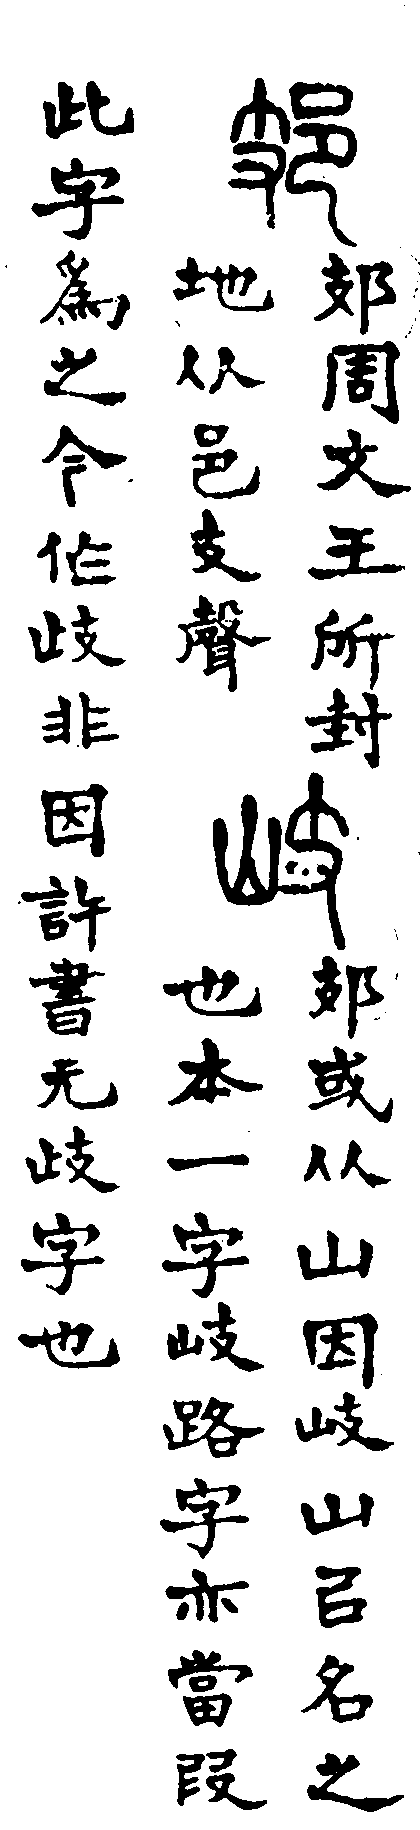 𨙸
𨙸周文王所封
地从邑支聲
岐
𨙸或从山因岐山㠯名之
也本一字岐路字亦當叚
此字爲之今作歧非因許書无歧字也